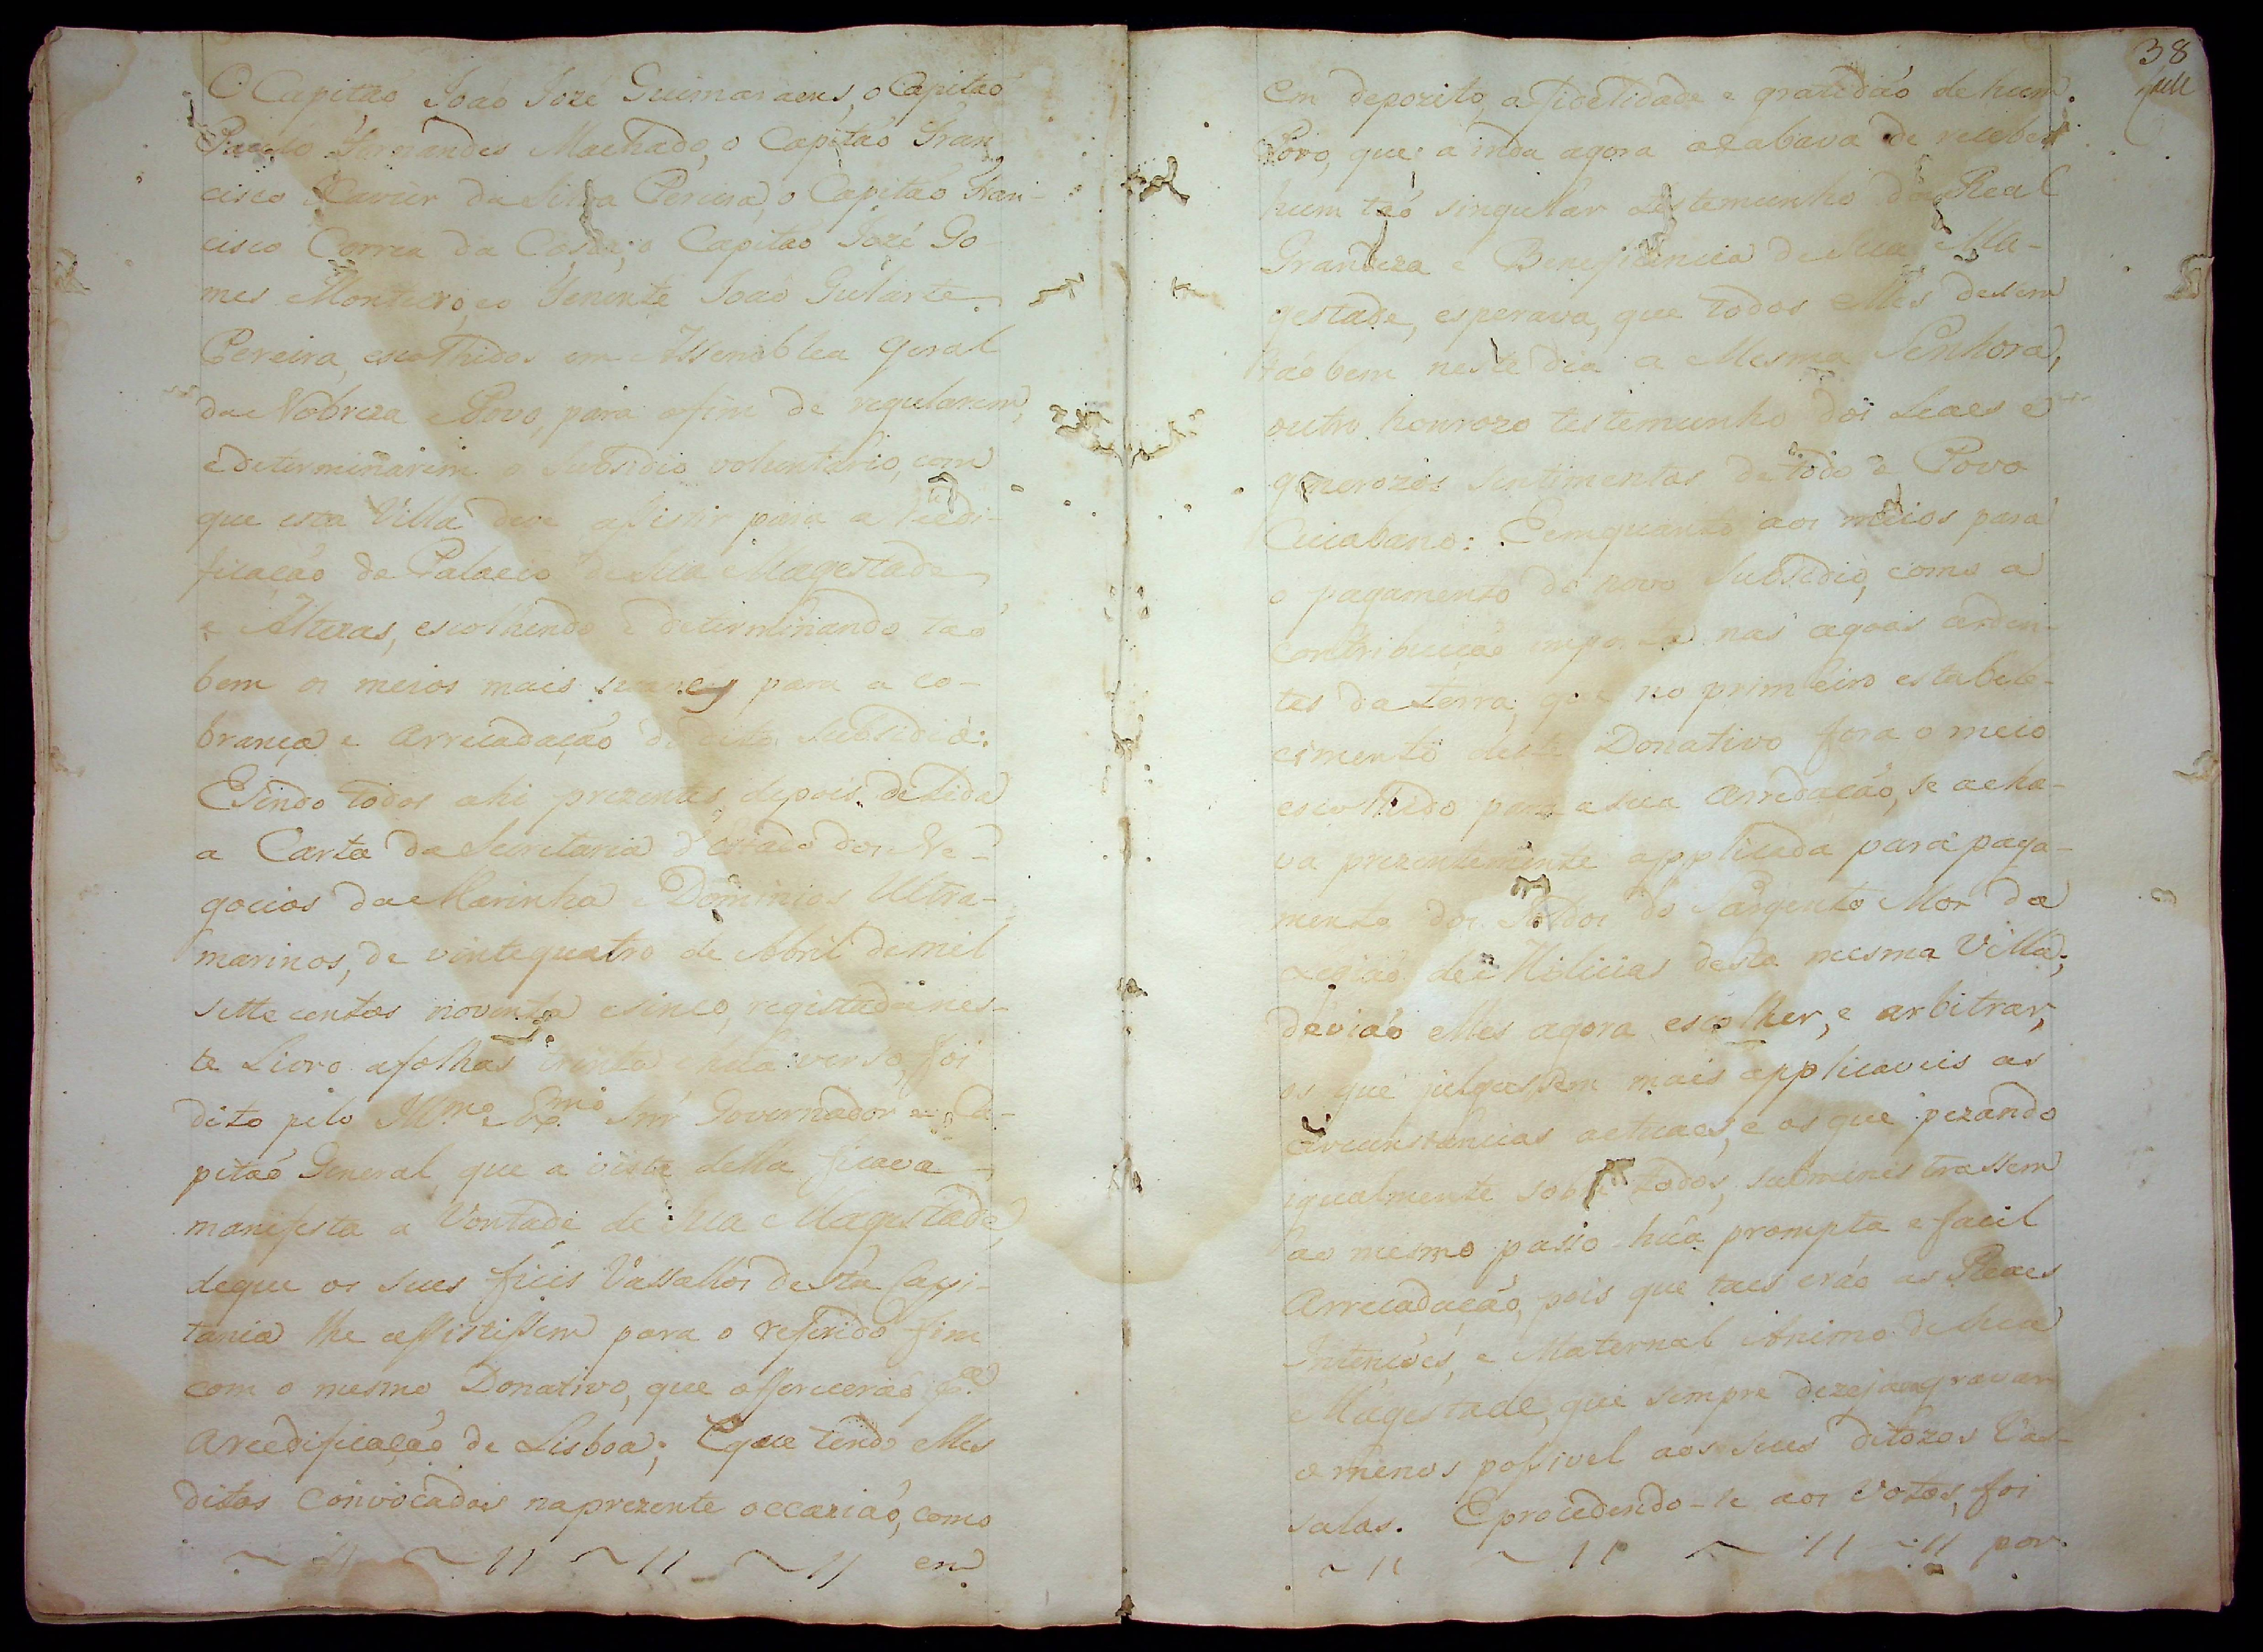 O Capitaõ Joaõ Jozé Guimaraens, o Capitaõ
Paulo Fernandes Machado, o Capitaõ Fran
cisco Xavier da Silva Pereira, o Capitaõ Fran-
cisco Correa da Costa, o Capitaõ Jozé Go-
mes Monteiro, eo Tenente Joaõ Gularte
Pereira, escolhidos em Assemblea geral
da Nobreza e Povo, para afim de regularem,
e determinarem o Subsidio voluntario, com
que esta Villa deve assistir para a reedi-
ficaçaõ do Palacio de Sua Magestade
e Altezas, escolhendo e determinando taõ
bem os meios mais suaves para a co-
brança e arrecadaçaõ do dito Subsidio:
Esendo todos ahi prezentes depois de lida
a Carta da Secretaria d'Estado dos Ne-
gocios da Marinha e Dominios Ultra-
marinos, de vinte quatro de Abril de mil
sette centos noventa esinco, registada nes-
te Livro afolhas trinta e huã verso, foi
dito pelo Ill.mo e Ex.mo Snr Governador e Ca-
pitaõ General, que a vista della ficava
manifesta a Vontade de Sua Magestade,
deque os seus fieis Vassallos desta Capi-
tania lhe assistissem para o referido fim
com o mesmo Donativo, que offereceraõ p.ª
areedificaçaõ de Lisboa; Eque tendo elles
ditos convocados naprezente occaziaõ, como
~ 11 ~ 11 ~ 11 ~ 11 em
38
em depozito, a fidelidade e gratidaõ de hum
Povo, que ainda agora acabava de receber
hum taõ singular testemunho da Real
Grandeza e Beneficencia de Sua Ma-
gestade, esperava, que todos elles desem
taõbem neste dia a Mesma Senhora,
outro honrozo testemunho dos Leaes e
generozos sentimentos de todo o Povo
Cuiabano: Eemquanto aos meios para
o pagamento do novo Subsidio, como a
contribuiçaõ imposta nas agoas arden-
tes da terra, que no primeiro estabele-
cimento deste Donativo fora o meio
escolhido para a sua Arredaçaõ, se acha-
va prezentemente applicada para paga-
mento dos Soldos do Sargento Mór da
Legiaõ de Milicias desta mesma Villa;
deviaõ elles agora escolher, e arbitrar,
os que julgassem mais applicaveis as
circunstancias actuaes, e os que pezando
igualmente sobre todos, subministrassem
ao mesmo passo huã prompta e facil
Arrecadaçaõ, pois que taes eraõ as Reaes
Intençoẽs, e Maternal Animo de Sua
Magestade, que sempre dezeja agravar
o menos possivel aos seus ditozos Vas-
salos. Eprocedendo-se aos votos, foi
~ 11 ~ 11 ~ 11 ~ 11 por